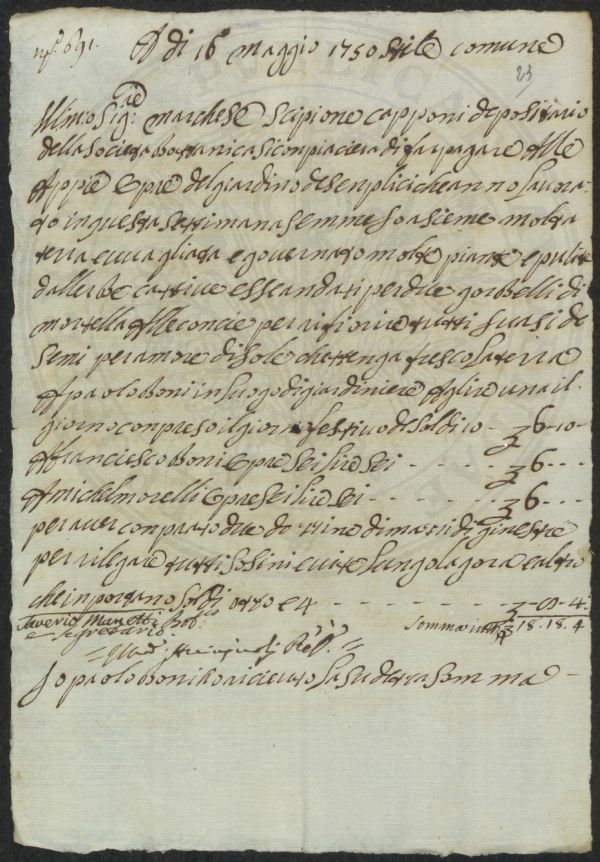 nº. 691.
A di 16 maggio 1750 stile comune
23
Illmo Sig:re marchese scipione capponi depositario
della societa bottanica si conpiacera di far pagare alle
Appie opre del giardino de senplici che anno lavora
to in questa settimana e
molta
terra e vagliata e governato molte piante e pulite
dallerbe cattive e
per due gorbelli di
mortella
per rifiorire tutti i vasi de
semi per amore di sole che tenga fresco la terra
A paolo Boni in luogo di giardiniere A lire una il
giorno conpreso il giorno festivo de soldi 10 - 6-10-
A Franciesco Boni opre sei lire sei - - - - - 6 - - -
A michel morelli opre sei lire sei - - - - - - 6 - - -
per aver conprato due
di mazzi di ginestre
per rilegare tutti
lungo la gora e altro
che inportano soldi otto e 4 - - - - - - - -8-4-
Saverio Manetti
e segretario.
Somma in tutto 18.18.4
Io paolo Boni o riceuto la sudetta somma -